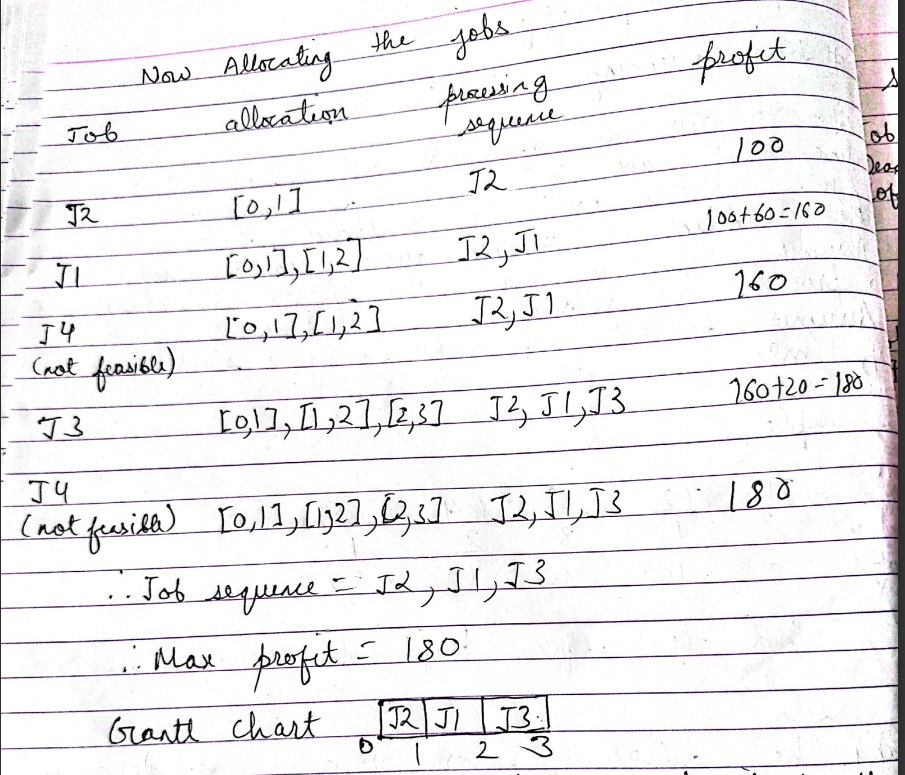 Now Allocating the jobs
Job allocation processing sequence profit
J2 [0,1] J2 100
J1 [0,1],[1,2] J2, J1 100+60=160
J4 [0,1],[1,2] J2, J1 160
(not feasible)
J3 [0,1],[1,2],[2,3] J2, J1, J3 160+20=180
J4
(not feasible) [0,1],[1,2],[2,3] J2, J1, J3 180
∴ Job sequence = J2, J1, J3
∴ Max profit = 180
Grantt Chart J2 J1 J3
0 1 2 3